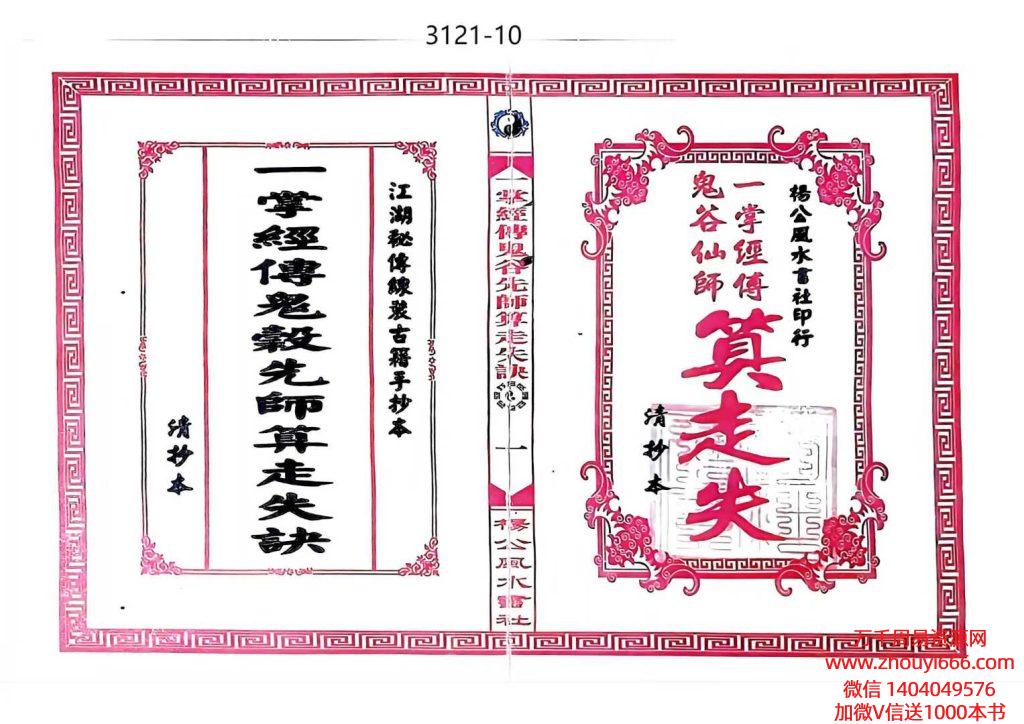 3121-10
楊公風水書社印行
一掌經傳
鬼谷仙師
算走失
清抄本
一掌經傳鬼谷先師算走失訣
一
楊公風水書社
江湖秘傳線裝古籍手抄本
一掌經傳鬼穀先師算走失訣
清抄本
万千周易资源网
www.zhouyi666.com
微信 1404049576
加微V信送1000本书